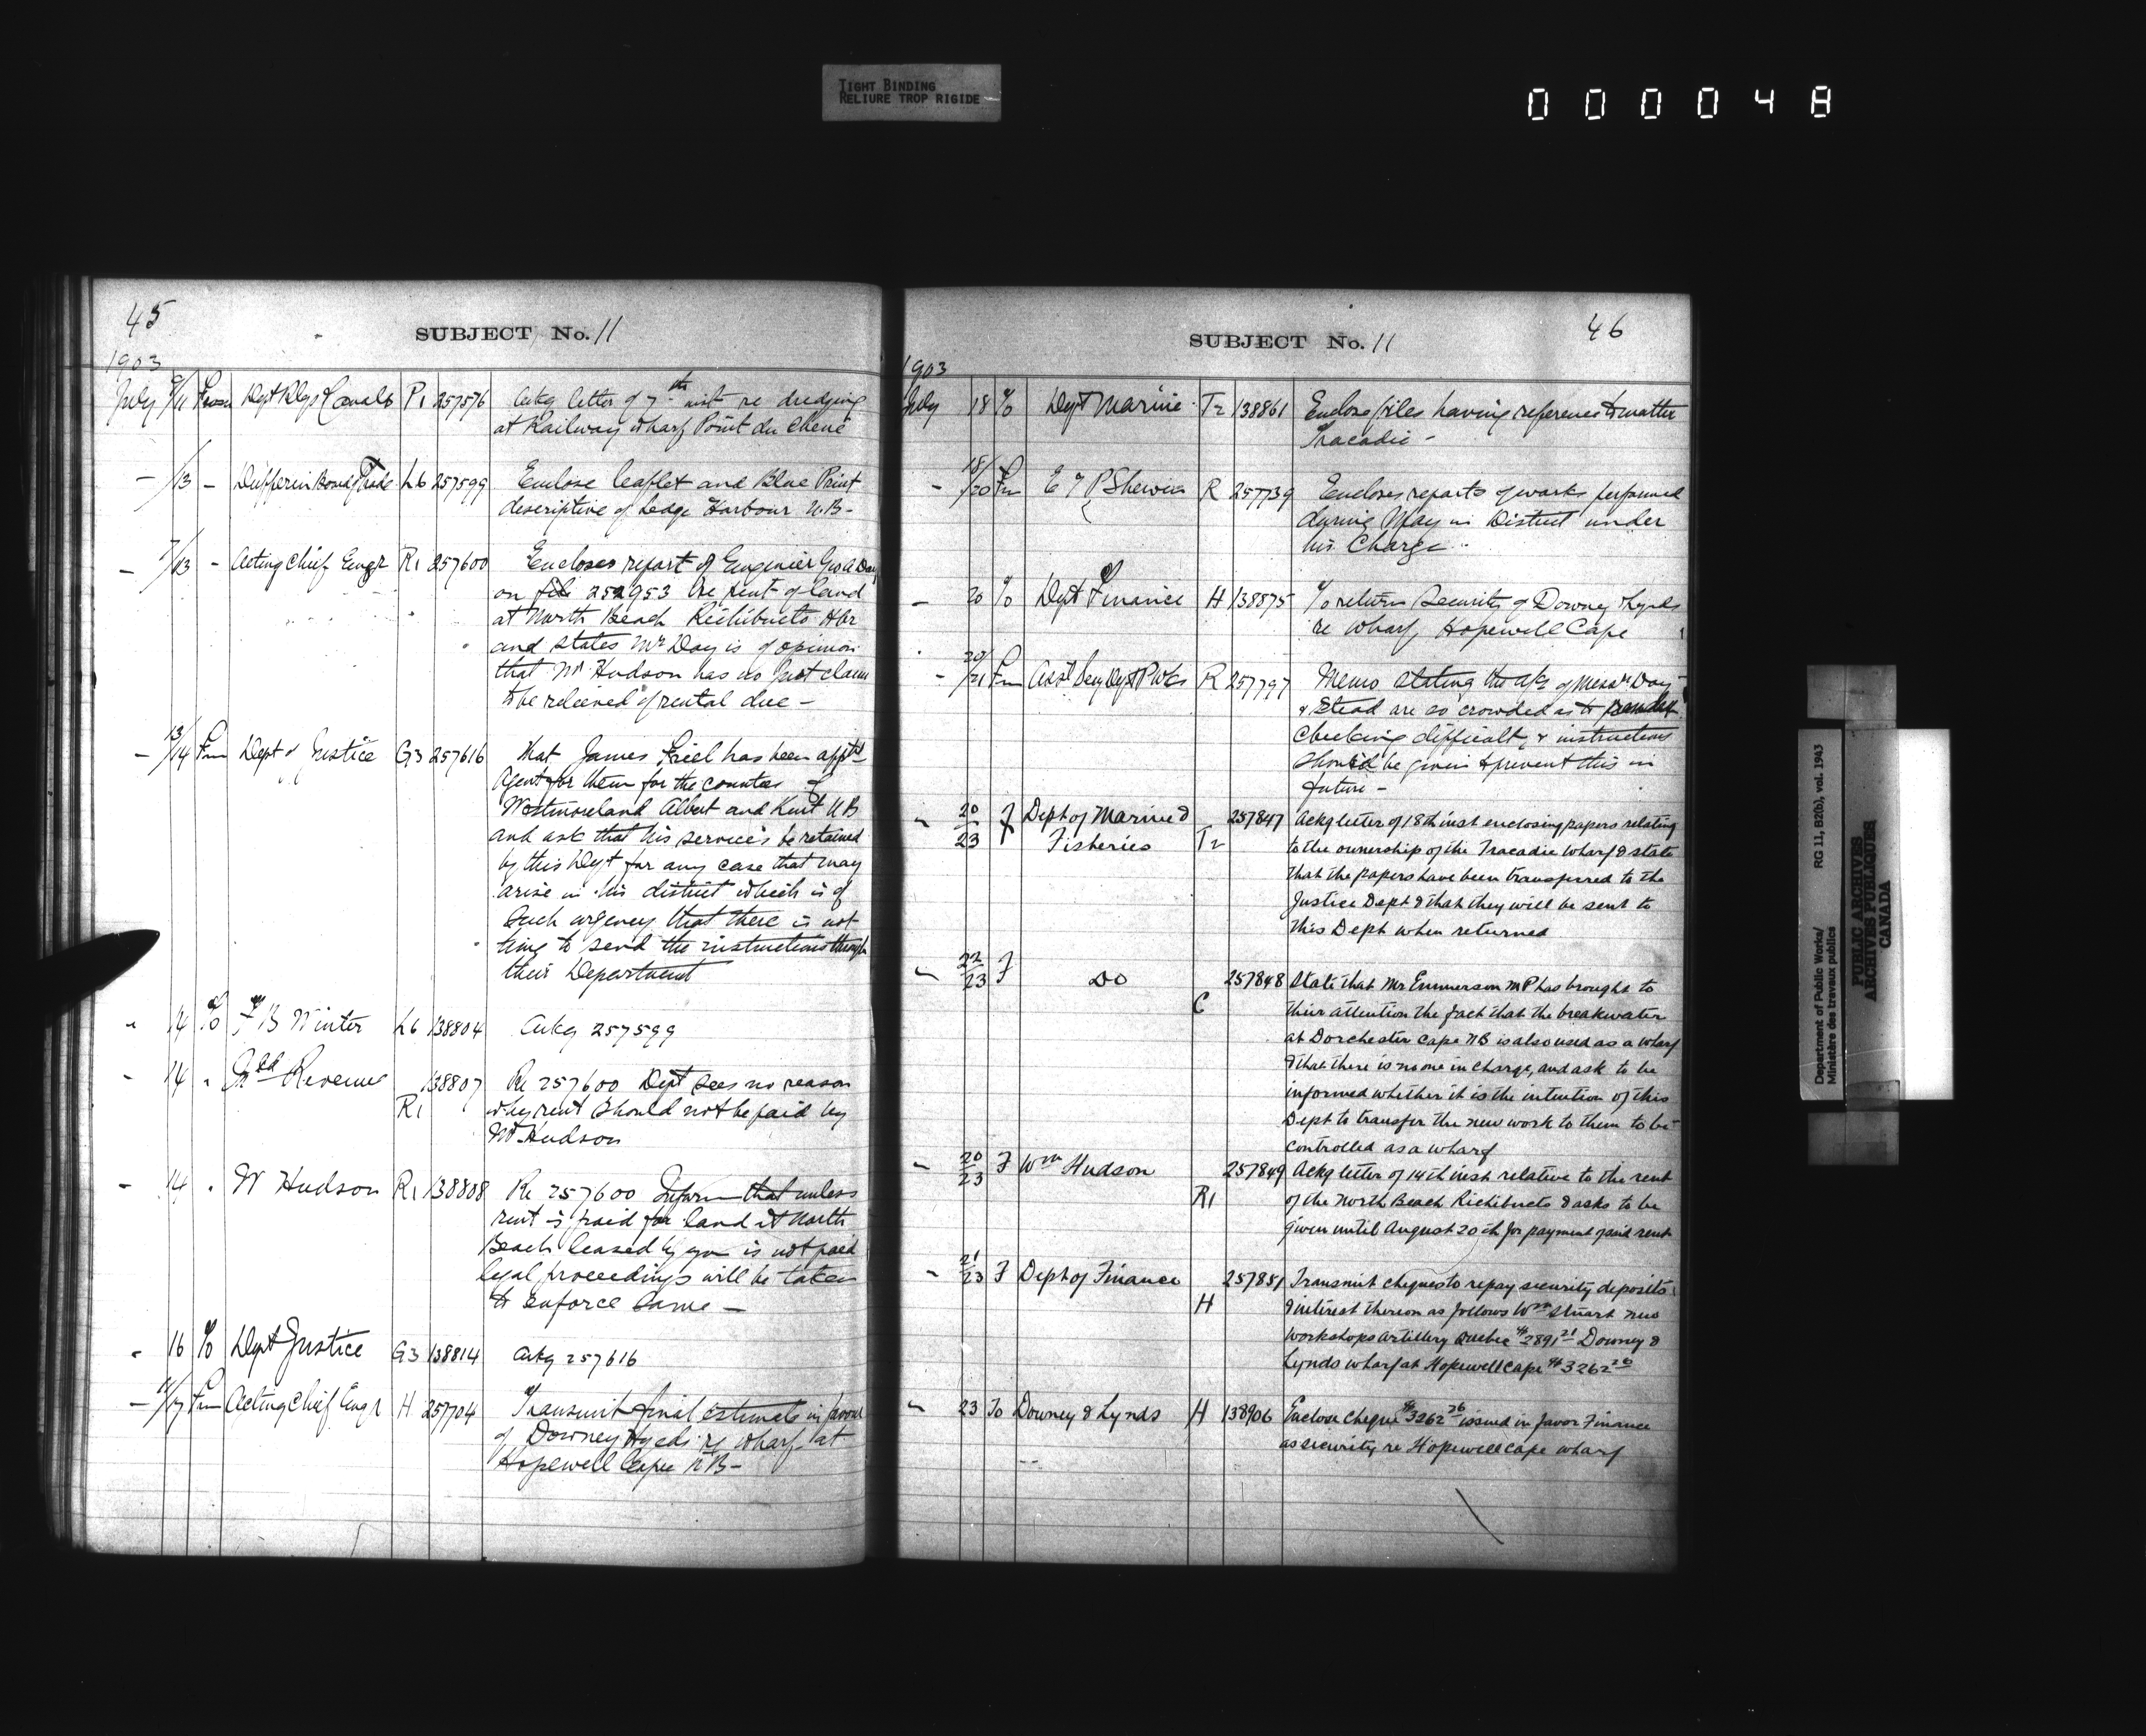 TIGHT BINDING
RELIURE TROP RIGIDE
000048
45
SUBJECT No. 11
1903
July 9/11 From Dept Rlys & Canals P1 257576 Ackg letter of 7th inst re dredging
at Railway wharf Point du Chene
- /13 - Dufferin Board of Trade L6 257599 Enclose leaflet and Blue Print
descriptive of Ledge Harbour N.B-
- 7/13 - Acting Chief Engr R1 257600 Encloses report of Engineer Geo A Day
on file 252953 re rent of land
at North Beach Richibucto Hbr
and states Mr Day is of opinion
that Mr Hudson has no just claim
to be relieved of rental due -
- 13/14 Frm Dept of Justice G3 257616 That James Friel has been apptd
Agent for them for the counties of
Westmoreland Albert and Kent N B
and ask that his services be retained
by this Dept for any case that may
arise in his district which is of
such urgency that there is not
time to send the instructions through
their Department
" 14 To B Winter L6 138804 Ackg 257599
- 14 " Revenue 138807 Re 257600 Dept sees no reason
R1 why rent should not be paid by
Mr Hudson
- 14 " W Hudson R1 138808 Re 257600 Inform that unless
rent is paid for land at North
Beach leased by you is not paid
legal proceedings will be taken
to enforce same -
- 16 To Dept Justice G3 138814 Ackg 257616
- /17 Frm Acting Chief Engr H 257704 Transmit final estimate in favour
of Downey & Lynds re wharf at
Hopewell Cape N B-
46
SUBJECT No. 11
1903
July 18 To Dept Marine T2 138861 Enclose files having reference to matter
Tracadie -
- 18/20 Frm E T P Shewen R 257739 Encloses reports of works performed
during May in District under
his Charge
- 20 To Dept Finance H 138875 To return Security of Downey & Lynds
re wharf Hopewell Cape
- 20/21 Frm Asst Secy Dept P Wks R 257797 Memo stating the a/cs of Messrs Day
& Stead are so crowded as to render
checking difficult, & instructions
should be given to prevent this in
future -
" 20/23 F Dept of Marine & 257847 Ackg letter of 18th inst enclosing papers relating
Fisheries T2 to the ownership of the Tracadie wharf & state
that the papers have been transferred to the
Justice Dept & that they will be sent to
this Dept when returned
" 22/23 F Do 257848 State that Mr Emmerson MP has brought to
C their attention the fact that the breakwater
at Dorchester Cape NB is also used as a wharf
& that there is no one in charge, and ask to be
informed whether it is the intention of this
Dept to transfer the new work to them to be
controlled as a wharf
- 20/23 F Wm Hudson 257849 Ackg letter of 14th inst relative to the rent
R1 of the North Beach Richibucto & asks to be
given until August 20th for payment of said rent
- 21/23 F Dept of Finance 257851 Transmit cheques to repay security deposits
H & interest thereon as follows Wm Stuart new
workshops artillery Quebec $2891 21 Downey &
Lynds wharf at Hopewell Cape $3262 26
" 23 To Downey & Lynds H 138906 Enclose cheque $3262 26 issued in favor Finance
as security re Hopewell Cape wharf
Department of Public Works/
Ministère des travaux publics
RG 11, B2(b), vol. 1943
PUBLIC ARCHIVES
ARCHIVES PUBLIQUES
CANADA